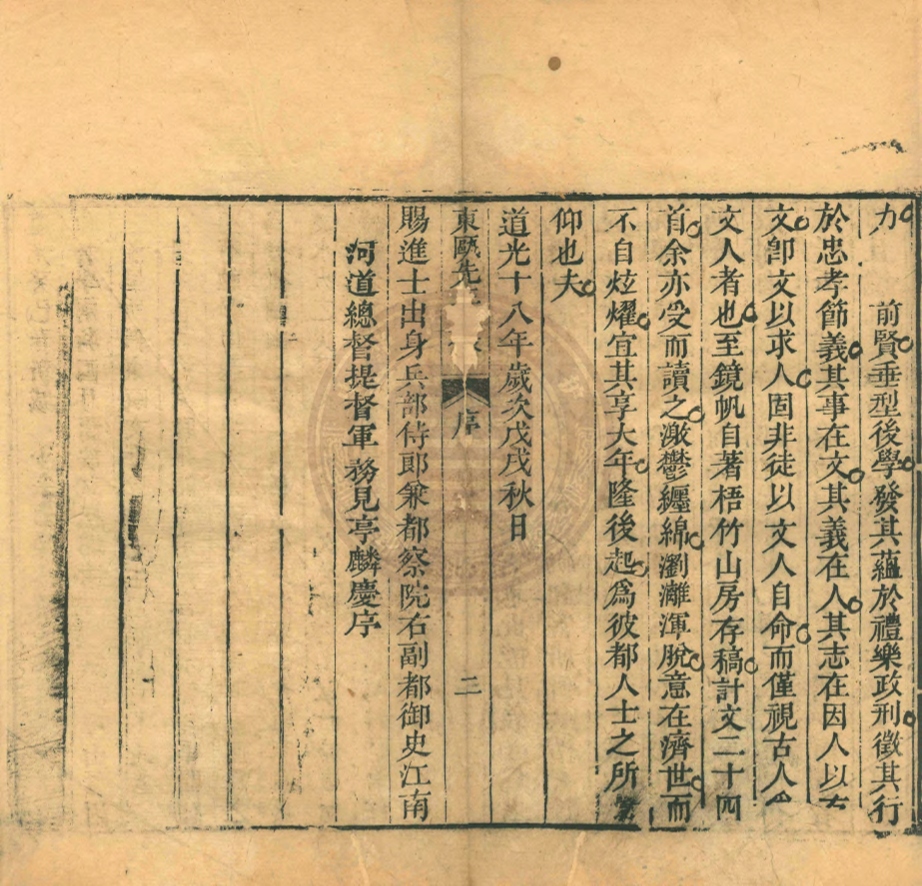 力 前賢垂型後學發其蘊於禮樂政刑徵其行
於忠孝節義其事在文其義在人其志在因人以
文卽文以求人固非徒以文人自命而僅視古人
文人者也至鏡帆自著梧竹山房存稿計文二十四
首余亦受而讀之激鬱纏綿瀏灕渾脫意在濟世而
不自炫耀宜其享大年隆後起爲彼都人士之所
仰也夫
道光十八年歲次戊戌秋日
東甌先 序 二
賜進士出身兵部侍郎兼都察院右副都御史江南
河道總督提督軍務見亭麟慶序